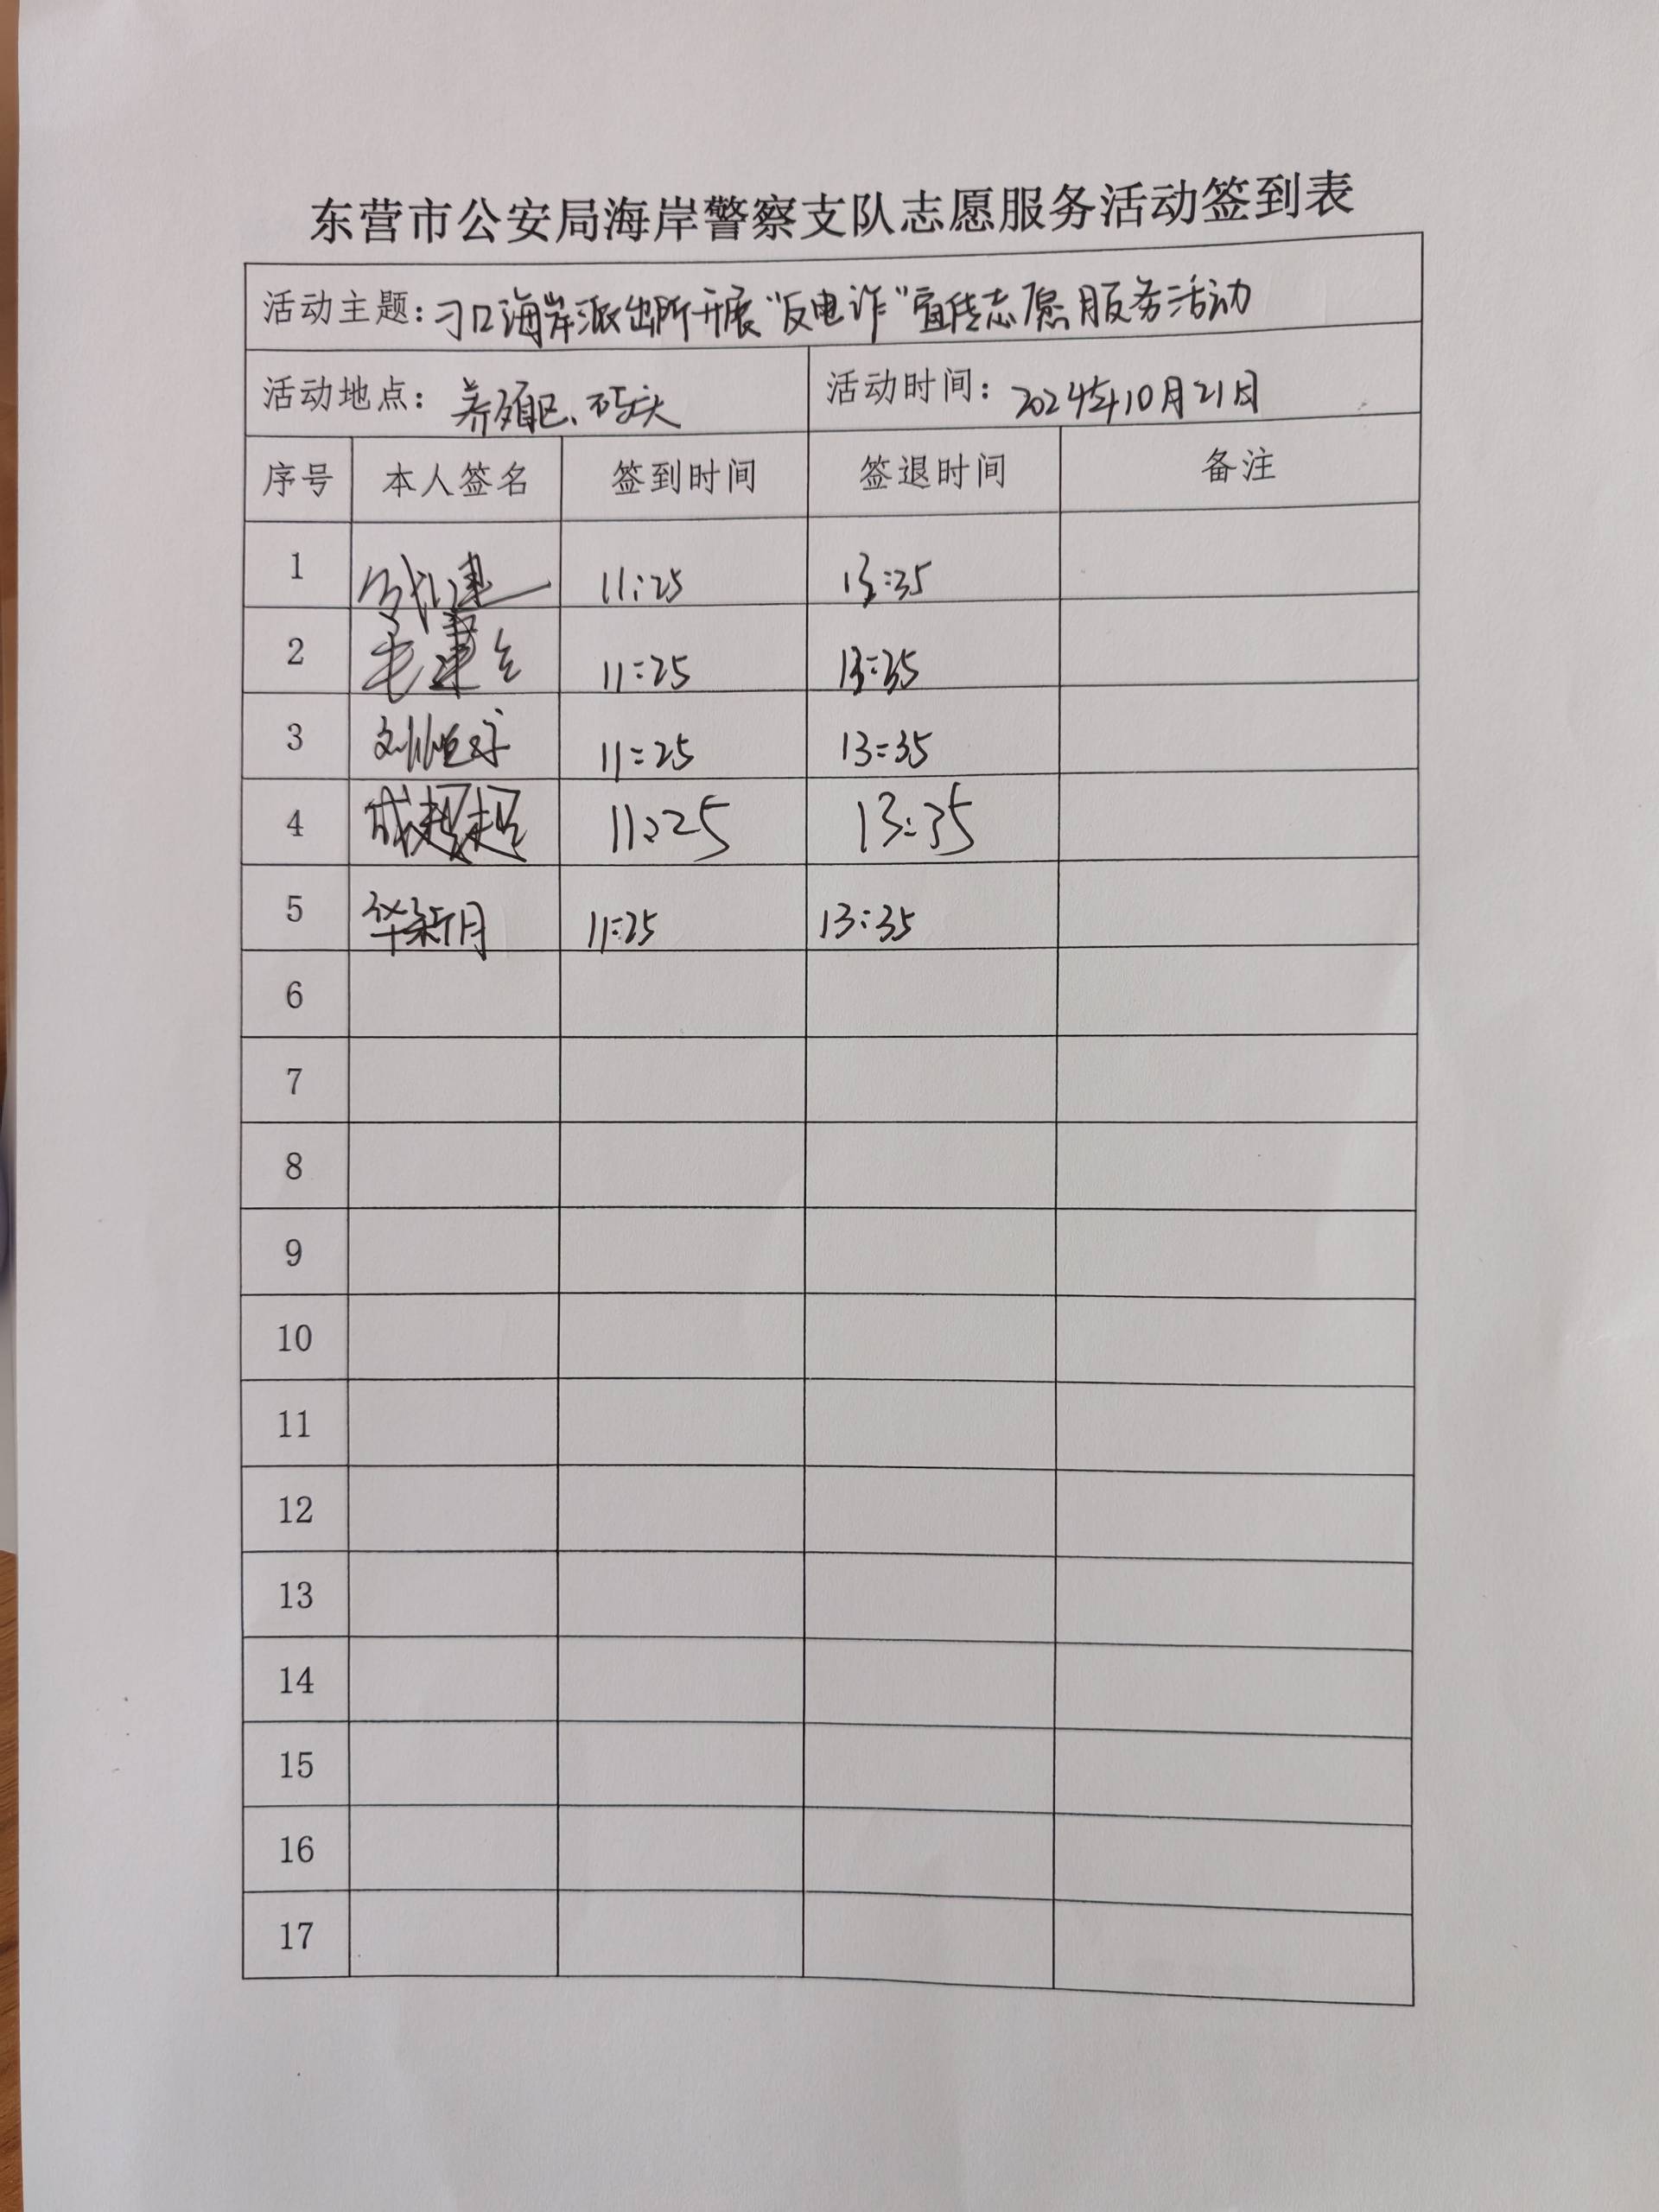 东营市公安局海岸警察支队志愿服务活动签到表
活动主题：刁口海岸派出所开展“反电诈”宣传志愿服务活动
活动地点：养殖区、码头 活动时间：2024年10月21日
序号 本人签名 签到时间 签退时间 备注
1 11:25 13:35
2 11:25 13:35
3 刘恒宇 11:25 13:35
4 成超超 11:25 13:35
5 华新月 11:25 13:35
6
7
8
9
10
11
12
13
14
15
16
17